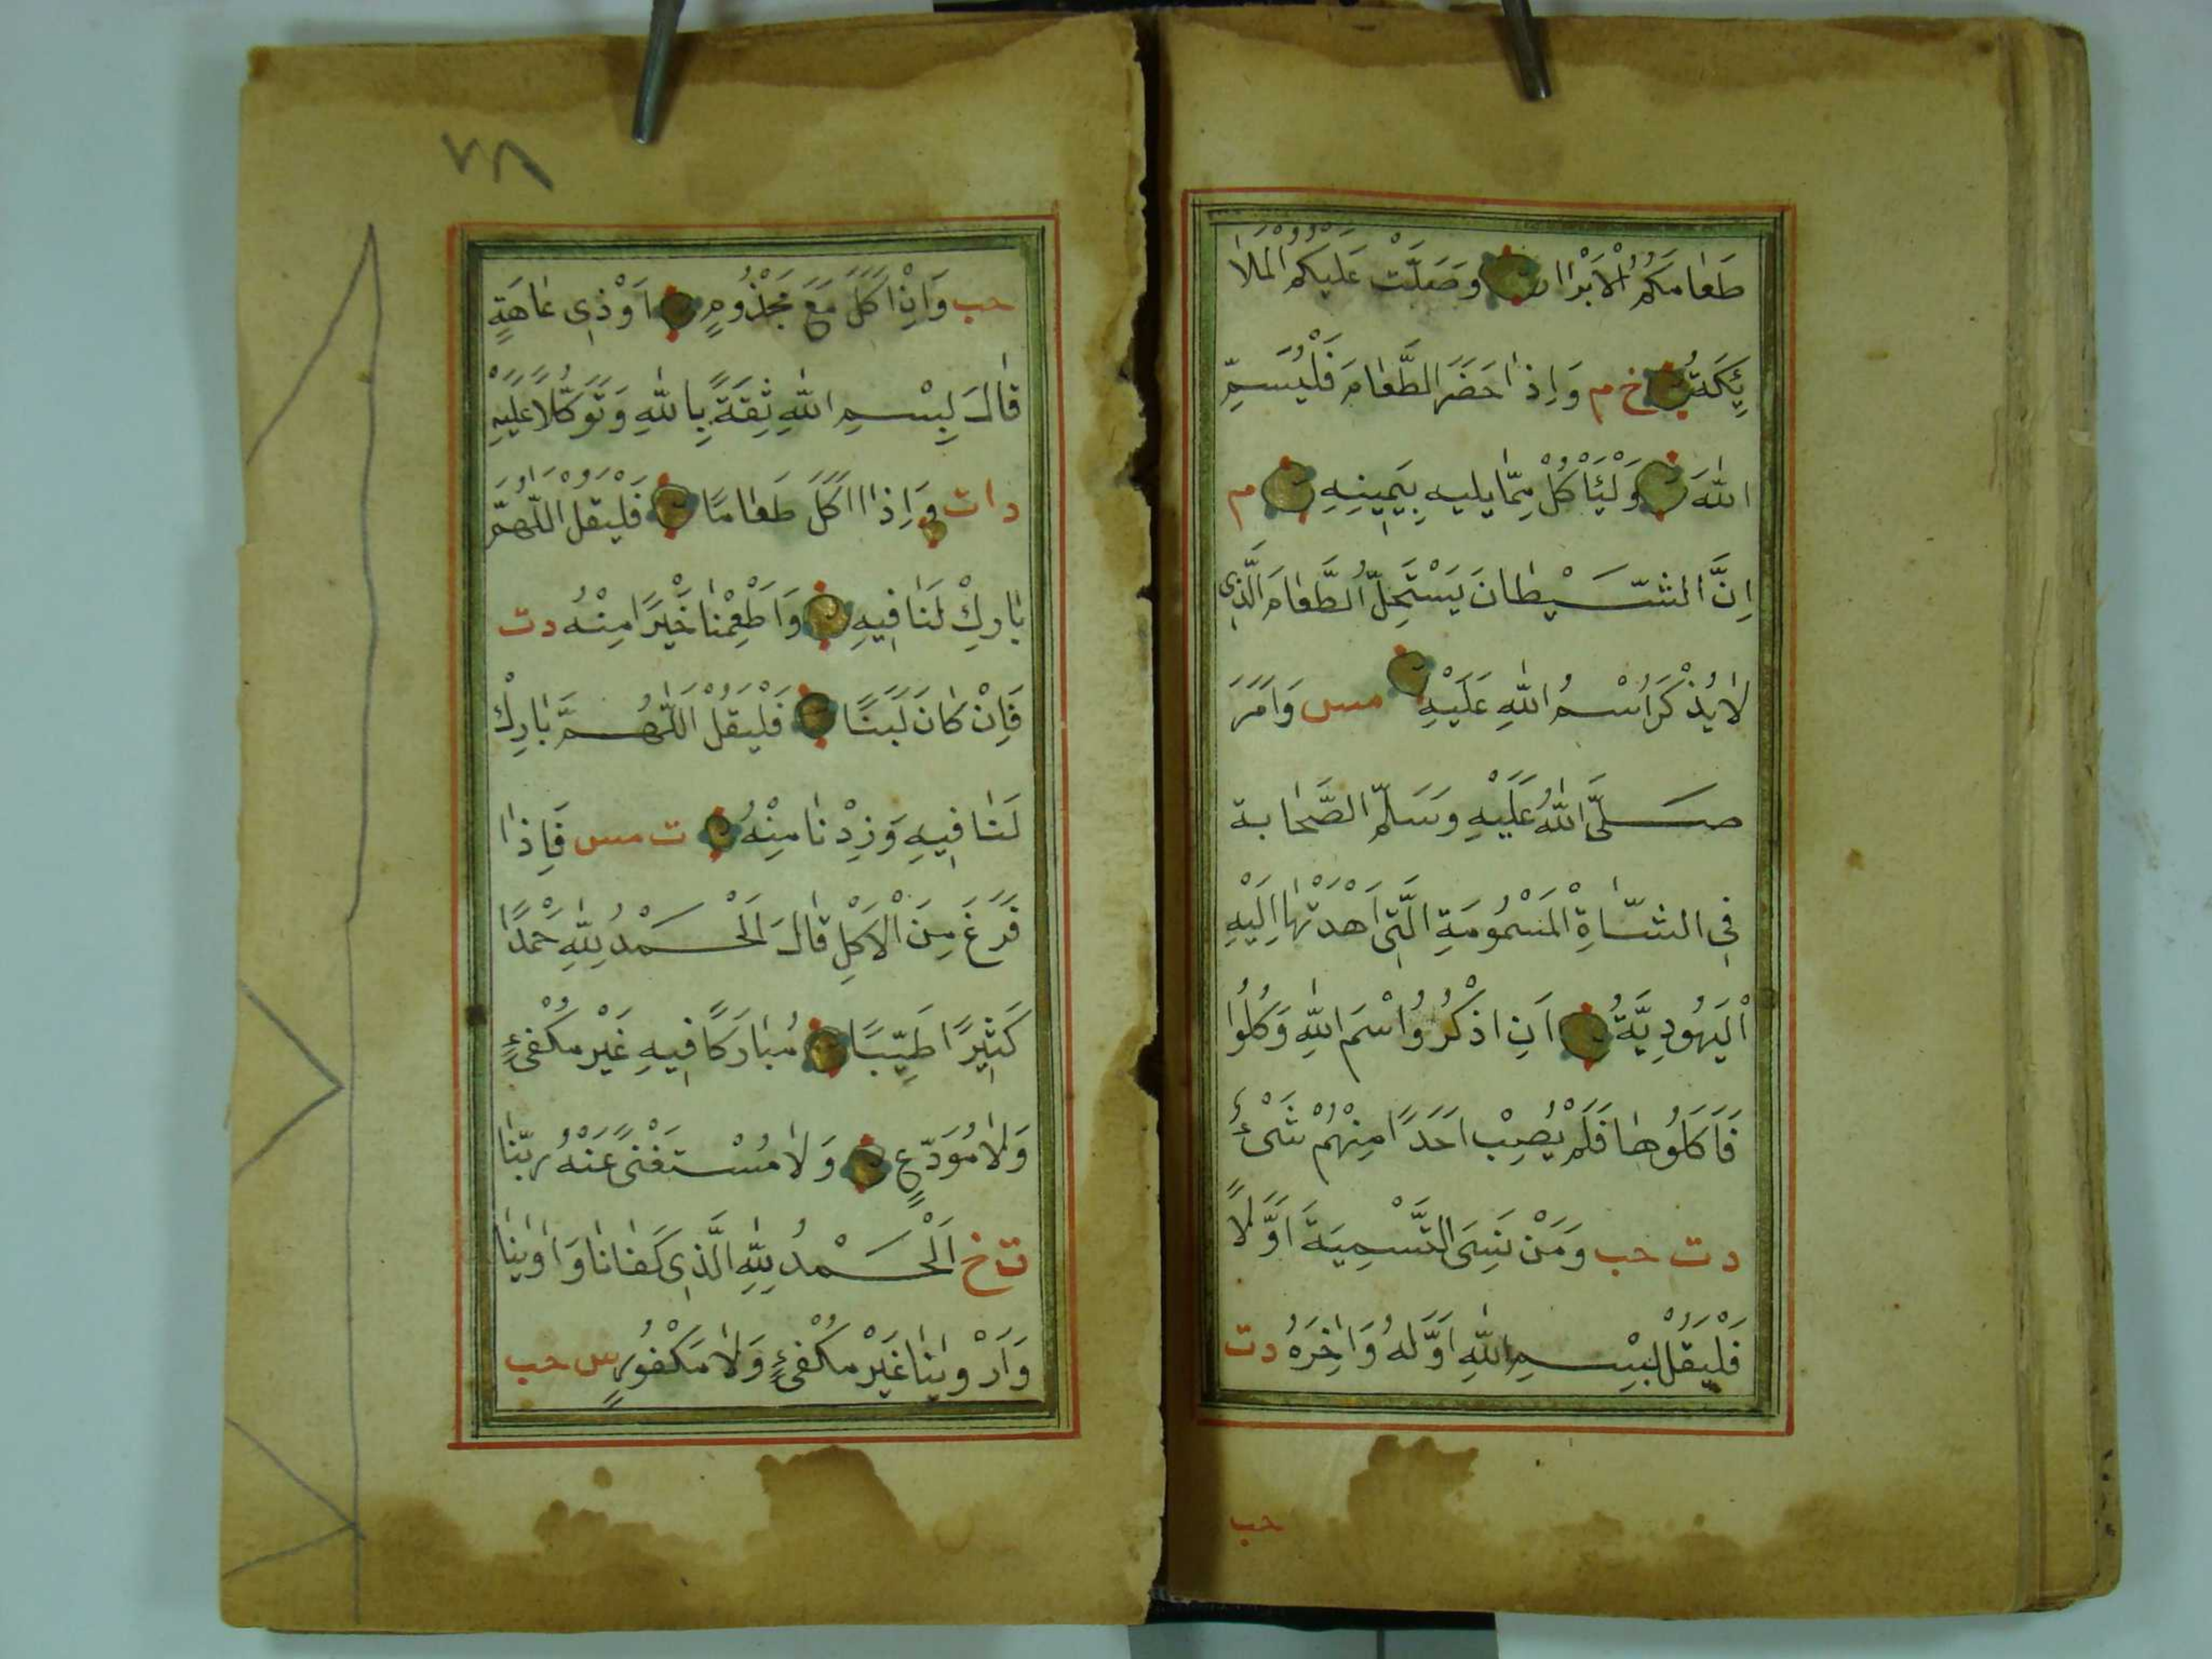 طَعَامَكُمُ الْاَبْرَارُ وَصَلَّتْ عَلَيْكُمُ الْمَلَا
ئِكَةُ خ م وَاِذَا حَضَرَ الطَّعَامَ فَلْيُسَمِّ
اللّٰهَ وَلْيَأْكُلْ مِمَّا يليهِ بِيَمِينِهِ م
اِنَّ الشَّيْطَانَ يَسْتَحِلُّ الطَّعَامَ الَّذِى
لَا يُذْكَرُ اسْمُ اللّٰهِ عَلَيْهِ مس وَاَمَرَ
صَلَّى اللّٰهُ عَلَيْهِ وَسَلَّمَ الصَّحَابة
فِى الشَّاةِ الْمَسْمُومَةِ الَّتِى اَهْدَتْهَا اِلَيْهِ
الْيَهُودِيَّةُ اَنِ اذْكُرُوا اسْمَ اللّٰهِ وَكُلُوا
فَاَكَلُوهَا فَلَمْ يُصِبْ اَحَدًا مِنْهُمْ شَىْءٌ
د ت حب وَمَنْ نَسِىَ التَّسْمِيَةَ اَوَّلًا
فَلْيَقُلْ بِسْمِ اللّٰهِ اَوَّلَهُ وَاٰخِرَهُ د ت
حب
٧٨
حب وَاِنْ اَكَلَ مَعَ مَجْذُومٍ اَوْ ذِى عَاهَةٍ
قَالَ بِسْمِ اللّٰهِ ثِقَةً بِاللّٰهِ وَتَوَكُّلًا عَلَيْهِ
د ات وَاِذَا اَكَلَ طَعَامًا فَلْيَقُلْ اللّٰهُمَّ
بَارِكْ لَنَا فِيهِ وَاَطْعِمْنَا خَيْرًا مِنْهُ د ت
فَاِنْ كَانَ لَبَنًا فَلْيَقُلْ اللّٰهُمَّ بَارِكْ
لَنَا فِيهِ وَزِدْنَا مِنْهُ ت مس فَاِذَا
فَرَغَ مِنَ الْاَكْلِ قَالَ اَلْحَمْدُ لِلّٰهِ حَمْدًا
كَثِيرًا طَيِّبًا مُبَارَكًا فِيهِ غَيْرَ مَكْفِىءٍ
وَلَا مُوَدَّعٍ وَلَا مُسْتَغْنًى عَنْهُ رَبَّنَا
ت خ اَلْحَمْدُ لِلّٰهِ الَّذِى كَفَانَا وَاٰوٰينَا
وَاَرْوٰينَا غَيْرَ مَكْفِىءٍ وَلَا مَكْفُورٍ س حب